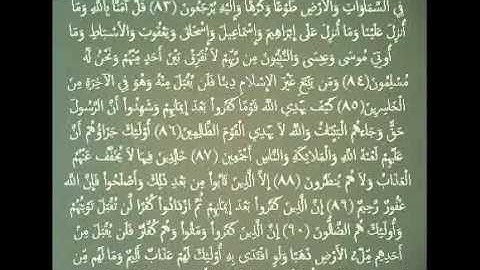 فِي السَّمَاوَاتِ وَالْأَرْضِ طَوْعًا وَكَرْهًا وَإِلَيْهِ يُرْجَعُونَ (٨٣) قُلْ آمَنَّا بِاللَّهِ وَمَا
أُنْزِلَ عَلَيْنَا وَمَا أُنْزِلَ عَلَى إِبْرَاهِيمَ وَإِسْمَاعِيلَ وَإِسْحَاقَ وَيَعْقُوبَ وَالْأَسْبَاطِ وَمَا
أُوتِيَ مُوسَى وَعِيسَى وَالنَّبِيُّونَ مِنْ رَبِّهِمْ لَا نُفَرِّقُ بَيْنَ أَحَدٍ مِنْهُمْ وَنَحْنُ لَهُ
مُسْلِمُونَ (٨٤) وَمَنْ يَبْتَغِ غَيْرَ الْإِسْلَامِ دِينًا فَلَنْ يُقْبَلَ مِنْهُ وَهُوَ فِي الْآخِرَةِ مِنَ
الْخَاسِرِينَ (٨٥) كَيْفَ يَهْدِي اللَّهُ قَوْمًا كَفَرُوا بَعْدَ إِيمَانِهِمْ وَشَهِدُوا أَنَّ الرَّسُولَ
حَقٌّ وَجَاءَهُمُ الْبَيِّنَاتُ وَاللَّهُ لَا يَهْدِي الْقَوْمَ الظَّالِمِينَ (٨٦) أُولَئِكَ جَزَاؤُهُمْ أَنَّ
عَلَيْهِمْ لَعْنَةَ اللَّهِ وَالْمَلَائِكَةِ وَالنَّاسِ أَجْمَعِينَ (٨٧) خَالِدِينَ فِيهَا لَا يُخَفَّفُ عَنْهُمُ
الْعَذَابُ وَلَا هُمْ يُنْظَرُونَ (٨٨) إِلَّا الَّذِينَ تَابُوا مِنْ بَعْدِ ذَلِكَ وَأَصْلَحُوا فَإِنَّ اللَّهَ
غَفُورٌ رَحِيمٌ (٨٩) إِنَّ الَّذِينَ كَفَرُوا بَعْدَ إِيمَانِهِمْ ثُمَّ ازْدَادُوا كُفْرًا لَنْ تُقْبَلَ تَوْبَتُهُمْ
وَأُولَئِكَ هُمُ الضَّالُّونَ (٩٠) إِنَّ الَّذِينَ كَفَرُوا وَمَاتُوا وَهُمْ كُفَّارٌ فَلَنْ يُقْبَلَ مِنْ
أَحَدِهِمْ مِلْءُ الْأَرْضِ ذَهَبًا وَلَوِ افْتَدَى بِهِ أُولَئِكَ لَهُمْ عَذَابٌ أَلِيمٌ وَمَا لَهُمْ مِنْ